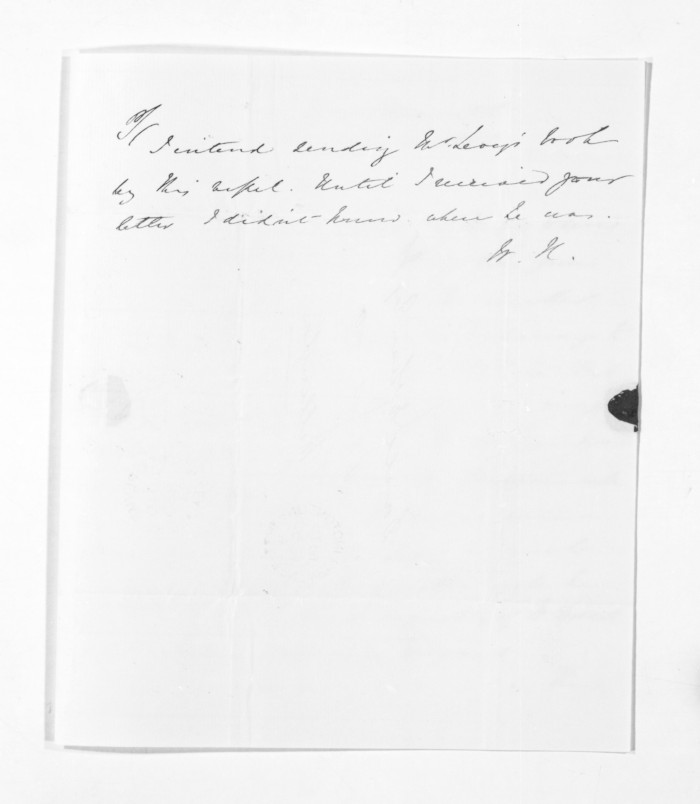 I intend sending Mr. Levy's book
by this vessel. Until I received your
letter I didn't know where he was.
W. H.